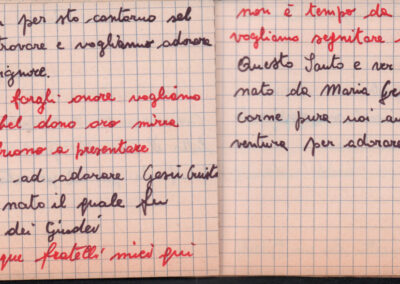 per sto contorno sel
trovare e vogliamo adorare
ignore.
farghi onore vogliamo
bel dono oro mirra
a presentare
ad adorare Gesù Cristo
nato il quale fu
dei Giudei
que fratelli miei qui
non è tempo da
vogliamo seguitare
Questo Santo e ver
nato da Maria
carne pura
ventura per adorare